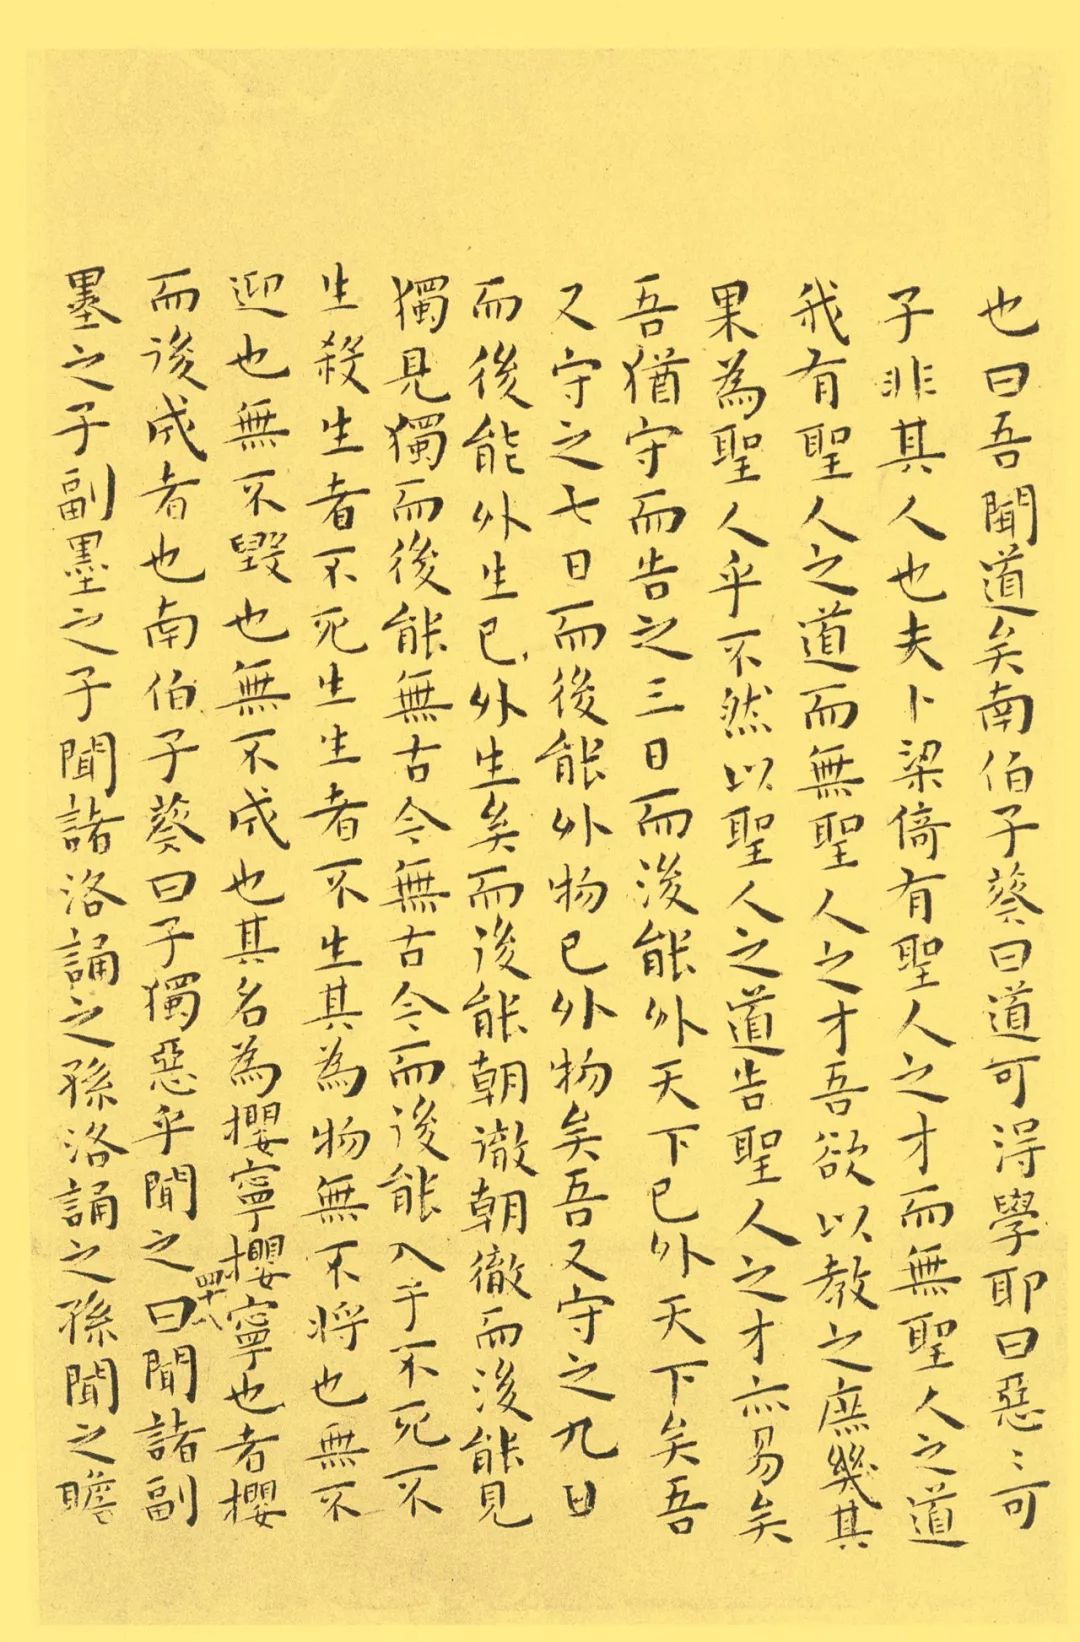 也曰吾聞道矣南伯子葵曰道可得學耶曰惡〻可
子非其人也夫卜梁倚有聖人之才而無聖人之道
我有聖人之道而無聖人之才吾欲以教之庶幾其
果為聖人乎不然以聖人之道告聖人之才亦易矣
吾猶守而告之三日而後能外天下已外天下矣吾
又守之七日而後能外物已外物矣吾又守之九日
而後能外生已外生矣而後能朝徹朝徹而後能見
獨見獨而後能無古今無古今而後能入乎不死不
生殺生者不死生生者不生其為物無不將也無不
迎也無不毀也無不成也其名為攖寧攖寧也者攖
而後成者也南伯子葵曰子獨惡乎聞之曰聞諸副
墨之子副墨之子聞諸洛誦之孫洛誦之孫聞之瞻
四十八